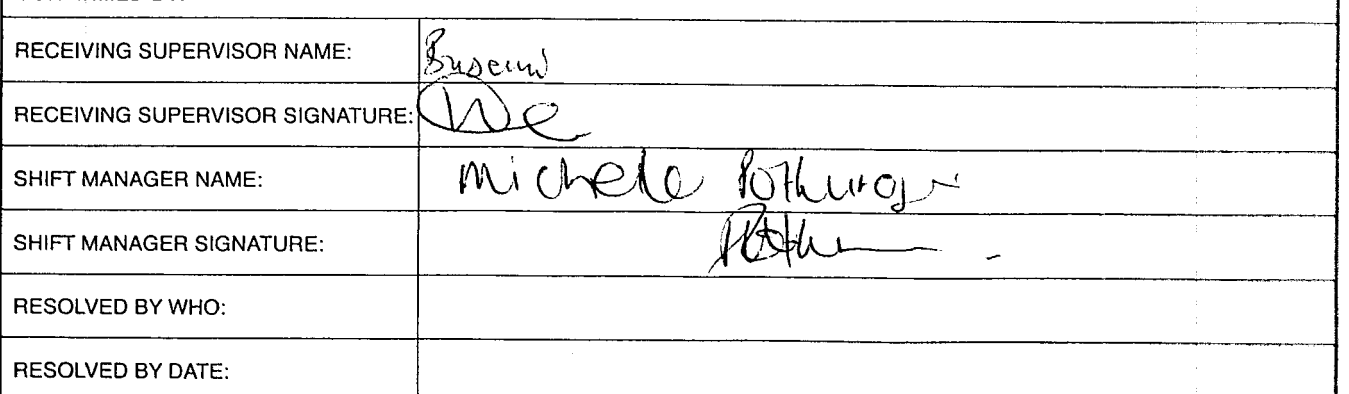 RECEIVING SUPERVISOR NAME:
RECEIVING SUPERVISOR SIGNATURE:
SHIFT MANAGER NAME: Michele
SHIFT MANAGER SIGNATURE:
RESOLVED BY WHO:
RESOLVED BY DATE: